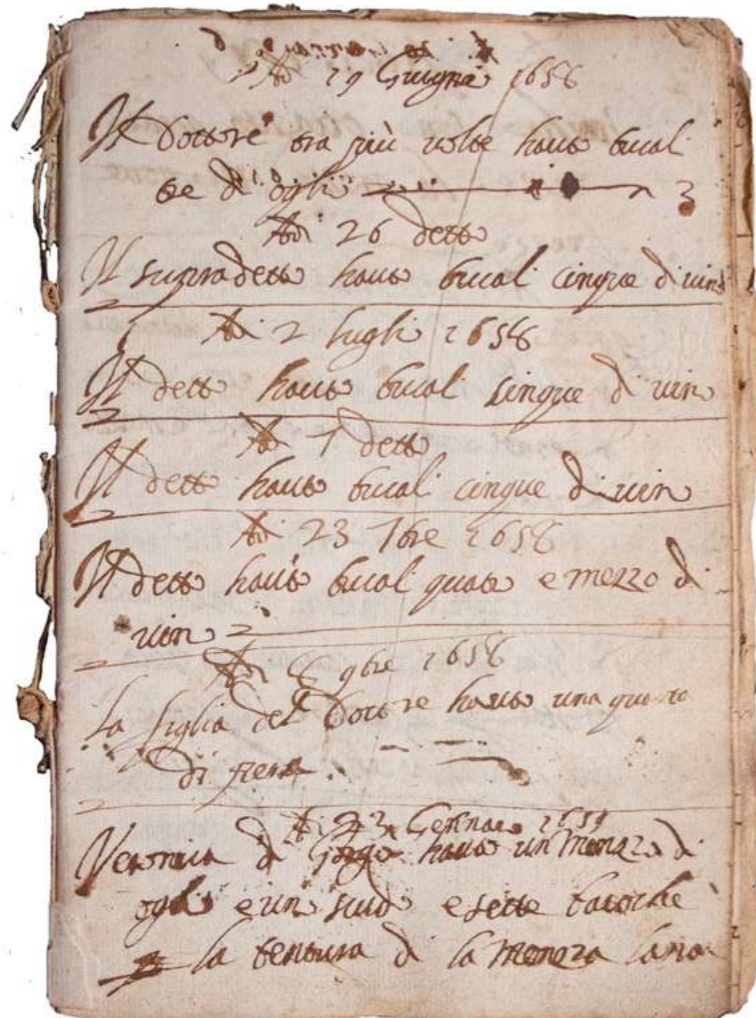 Adi 29 Giugno 1658
Il Dottore tra più volte hauto bucal
tre di oglio 3
Adi 26 detto
Il supradetto hauto bucal cinque di vin
Adi 2 lugli 1658
Il detto hauto bucal cinque di vin
Adi 1 detto
Il detto hauto bucal cinque di vin
Adi 23 7bre 1658
Il detto hauto bucal quato e mezzo di
vin
Adi 8 9bre 1658
La figlia del Dottore hauto una quarto
di
Adi 22 Gennaro 1659
di hauto un di
ogli e un scud e sette baioche
la tentura di la lana